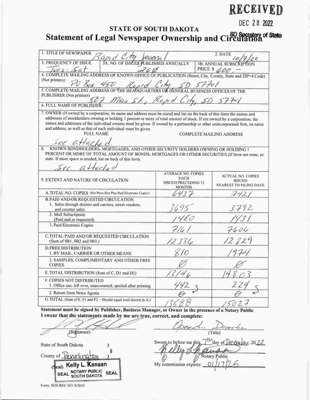 RECEIVED
DEC 28 2022
SD Secretary of State
STATE OF SOUTH DAKOTA
Statement of Legal Newspaper Ownership and Circulation
1. TITLE OF NEWSPAPER Rapid City Journal
2. DATE
3. FREQUENCY OF ISSUE
3A. NO. OF ISSUES PUBLISHED ANNUALLY
3B. ANNUAL SUBSCRIPTION PRICE $
4. COMPLETE MAILING ADDRESS OF KNOWN OFFICE OF PUBLICATION (Street, City, County, State and ZIP+4 Code)
(Not Printers) PO Box 450 Rapid City SD 57701
5. COMPLETE MAILING ADDRESS OF THE HEADQUARTERS OF GENERAL BUSINESS OFFICES OF THE
PUBLISHER (Not printers) 507 Main St, Rapid City SD 57701
6. FULL NAME OF PUBLISHER:
7. OWNER (If owned by a corporation, its name and address must be stated and list on the back of this form the names and
addresses of stockholders owning or holding 1 percent or more of total amount of stock. If not owned by a corporation, the
names and addresses of the individual owners must be given. If owned by a partnership or other unincorporated firm, its name
and address, as well as that of each individual must be given.
FULL NAME COMPLETE MAILING ADDRESS
See attached
8. KNOWN BONDHOLDERS, MORTGAGES, AND OTHER SECURITY HOLDERS OWNING OR HOLDING 1
PERCENT OR MORE OF TOTAL AMOUNT OF BONDS, MORTGAGES OR OTHER SECURITIES (If there are none, so
state. If more space is needed, list on back of this form.
See attached
9. EXTENT AND NATURE OF CIRCULATION
AVERAGE NO. COPIES EACH ISSUE PRECEDING 12 MONTHS
ACTUAL NO. COPIES ISSUED NEAREST TO FILING DATE
A. TOTAL NO. COPIES (Net Press Run Plus Paid Electronic Copies)
B. PAID AND/OR REQUESTED CIRCULATION
1. Sales through dealers and carriers, street vendors,
and counter sales 3695 3792
2. Mail Subscription
(Paid and/or requested) 1480 1431
3. Paid Electronic Copies 7161 7606
C. TOTAL PAID AND/OR REQUESTED CIRCULATION
(Sum of 9B1, 9B2 and 9B3.) 12336 12829
D. FREE DISTRIBUTION
1. BY MAIL, CARRIER OR OTHER MEANS 810 1974
2. SAMPLES, COMPLIMENTARY AND OTHER FREE
COPIES Ø Ø
E. TOTAL DISTRIBUTION (Sum of C, D1 and D2) 13146 14803
F. COPIES NOT DISTRIBUTED
1. Office use, left over, unaccounted, spoiled after printing 442 224
2. Return from News Agents Ø Ø
G. TOTAL (Sum of E, F1 and F2 - Should equal total shown in A) 13588 15027
Statement must be signed by Publisher, Business Manager, or Owner in the presence of a Notary Public
I swear that the statements made by me are true, correct, and complete:
(Signature)
(Title)
State of South Dakota )
County of Pennington )
Sworn to before me this 7th day of December 20 22
Kelly Kanaan
Notary Public
(Seal)
My commission expires: 01/17/26
Kelly L. Kanaan
SEAL NOTARY PUBLIC SOUTH DAKOTA SEAL